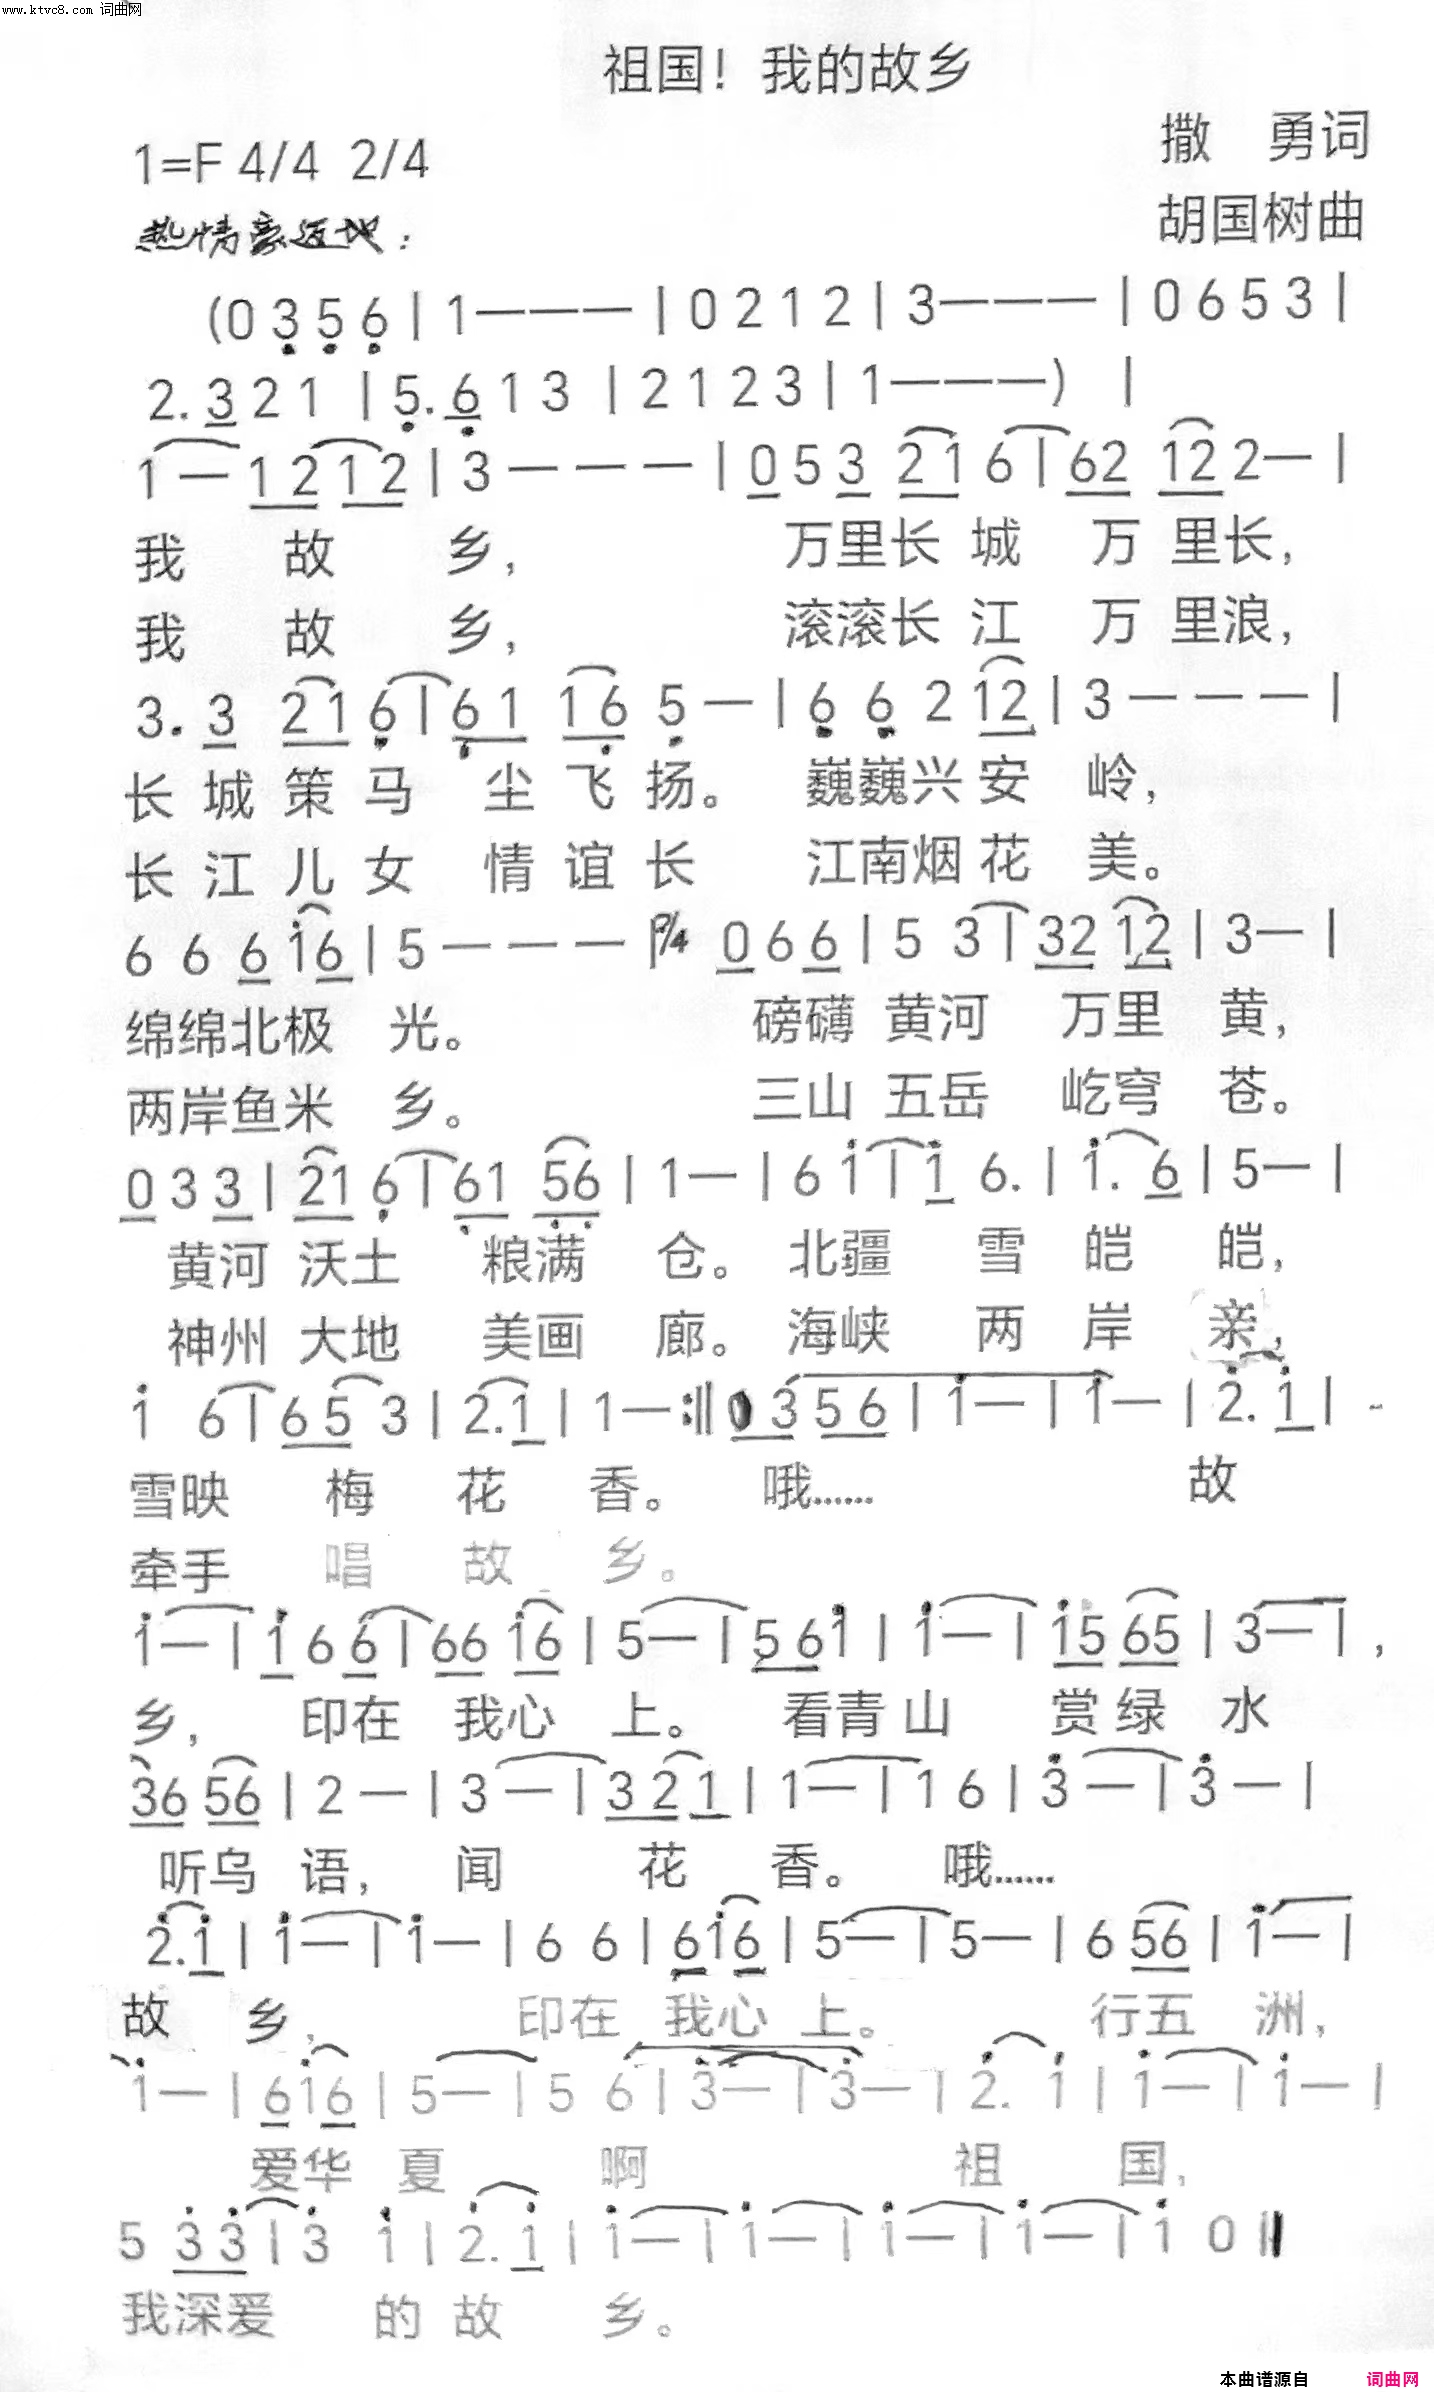 www.ktvc8.com 词曲网
祖国！我的故乡
1=F 4/4 2/4
撒 勇词
热情豪迈地：
胡国树曲
(0 3 5 6 | 1 — — — | 0 2 1 2 | 3 — — — | 0 6 5 3 |
2. 3 2 1 | 5. 6 1 3 | 2 1 2 3 | 1 — — — ) |
1 — 1 2 1 2 | 3 — — — | 0 5 3 2 1 6 | 6 2 1 2 2 — |
我 故 乡， 万里长 城 万 里长，
我 故 乡， 滚滚长 江 万 里浪，
3. 3 2 1 6 | 6 1 1 6 5 — | 6 6 2 1 2 | 3 — — — |
长 城 策 马 尘 飞 扬。 巍巍兴 安 岭，
长 江 儿 女 情 谊 长 江南烟 花 美。
6 6 6 i 6 | 5 — — — | 2/4 0 6 6 | 5 3 | 3 2 1 2 | 3 — |
绵绵北极 光。 磅礴 黄河 万里 黄，
两岸鱼米 乡。 三山 五岳 屹穹 苍。
0 3 3 | 2 1 6 | 6 1 5 6 | 1 — | 6 i | i 6. | i. 6 | 5 — |
黄河 沃土 粮满 仓。 北疆 雪 皑 皑，
神州 大地 美画 廊。 海峡 两 岸 亲，
i 6 | 6 5 3 | 2. 1 | 1 — :|| 0 3 5 6 | i — | i — | 2. i |
雪映 梅 花 香。 哦…… 故
牵手 唱 故 乡。
i — | i 6 6 | 6 6 i 6 | 5 — | 5 6 i | i — | i 5 6 5 | 3 — |
乡， 印在 我心 上。 看青 山 赏 绿 水
3 6 5 6 | 2 — | 3 — | 3 2 1 | 1 — | 1 6 | 3 — | 3 — |
听乌 语， 闻 花 香。 哦……
2. i | i — | i — | 6 6 | 6 i 6 | 5 — | 5 — | 6 5 6 | i — |
故 乡， 印在 我心 上。 行五 洲，
i — | 6 i 6 | 5 — | 5 6 | 3 — | 3 — | 2. i | i — | i — |
爱华 夏 啊 祖 国，
5 3 3 | 3 i | 2. i | i — | i — | i — | i — | i 0 ||
我深爱 的 故 乡。
本曲谱源自 词曲网